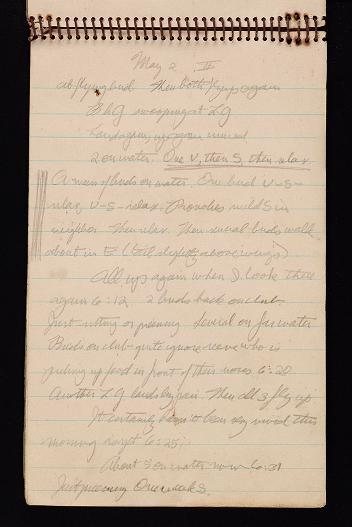 May 2 IV
at flying bird. Then both keep again
BhG swooping at LG
2 on water. One V, then S, then relax.
A mass of birds on water. One bird V-S-
relax, V-S-relax. Provokes mild S in
neighbor. Then relax. Then several birds walk
about in E (tail slightly above wings)
All up again when I look there
again 6:12. 2 birds back on club.
Just sitting or preening. Several on far water
Birds on club quite ignore reeve who is
picking up food in front of their noses 6:20
Another LG lands by pair. Then all 3 fly up
It certainly hasn't been very vivid this
morning except 6:25;
About 3 on water now 6:31
Just preening. One S.